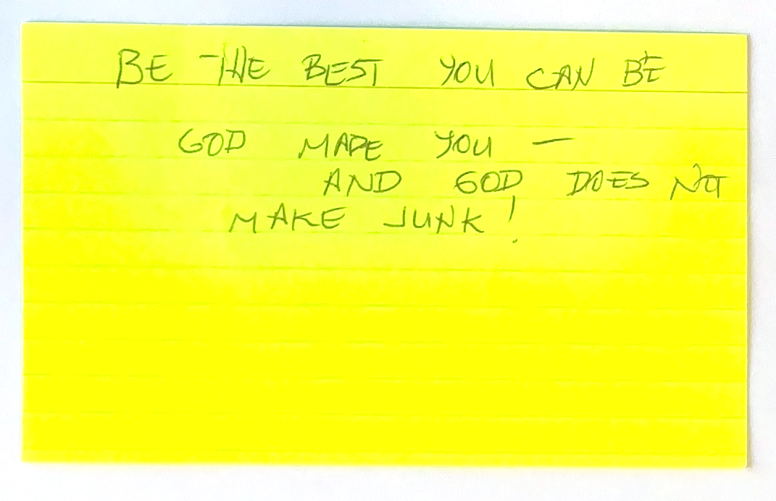 BE THE BEST YOU CAN BE
GOD MADE YOU —
AND GOD DOES NOT
MAKE JUNK!